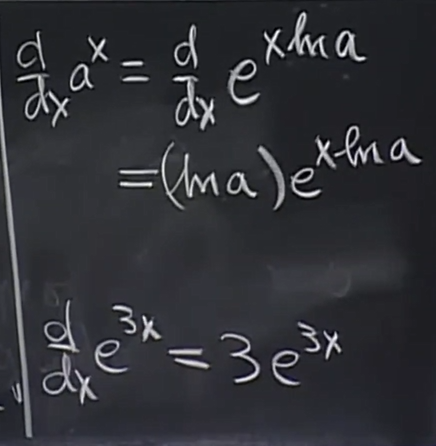 d/dx a^x = d/dx e^{x ln a}
= (ln a) e^{x ln a}
d/dx e^{3x} = 3e^{3x}